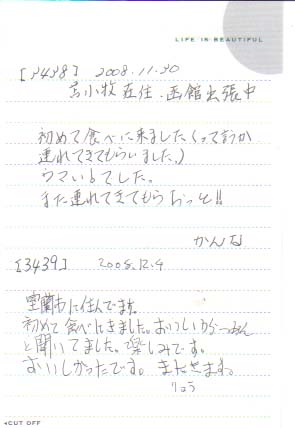 LIFE IS BEAUTIFUL
[3438] 2008.11.30
苫小牧在住・函館出張中
初めて食べに来ました(ってゆうか
連れてきてもらいました。)
ウマいもでした。
また連れてきてもらおっと!!
かんな
[3439] 2008.12.4
室蘭市に住んでます。
初めて食べにきました。おいしいから
と聞いてました。楽しみです。
おいしかったです。またきます。
リョウ
◂CUT OFF